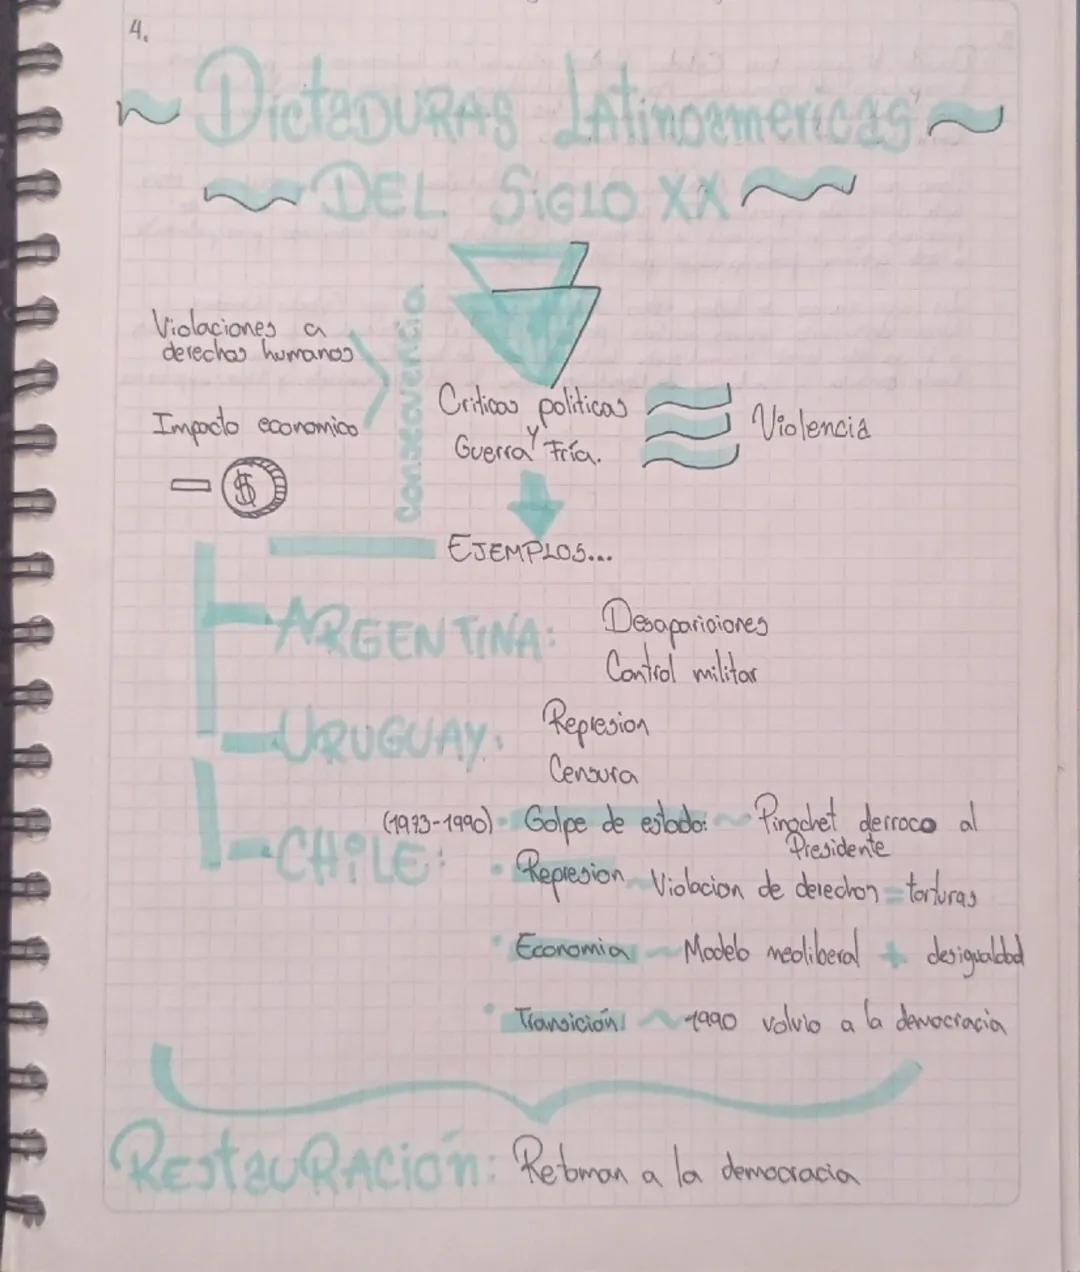 4.
DictaDURAS LAtinoamericas
DEL SiGLO XX
Violaciones a
derechos humanos
Impacto economico
- $
Consecuencia
Criticas politicas
y
Guerra Fría.
Violencia
EJEMPLOS...
ARGENTINA:
Desapariciones
Control militar
URUGUAY:
Represion
Censura
CHiLE:
(1973-1990) Golpe de estado: ~ Pinochet derroco al
Presidente
• Represion ~ Violacion de derechos = torturas
• Economia ~ Modelo neoliberal + desigualdad
• Transición: ~ 1990 volvio a la democracia
REstauRAción: Retoman a la democracia